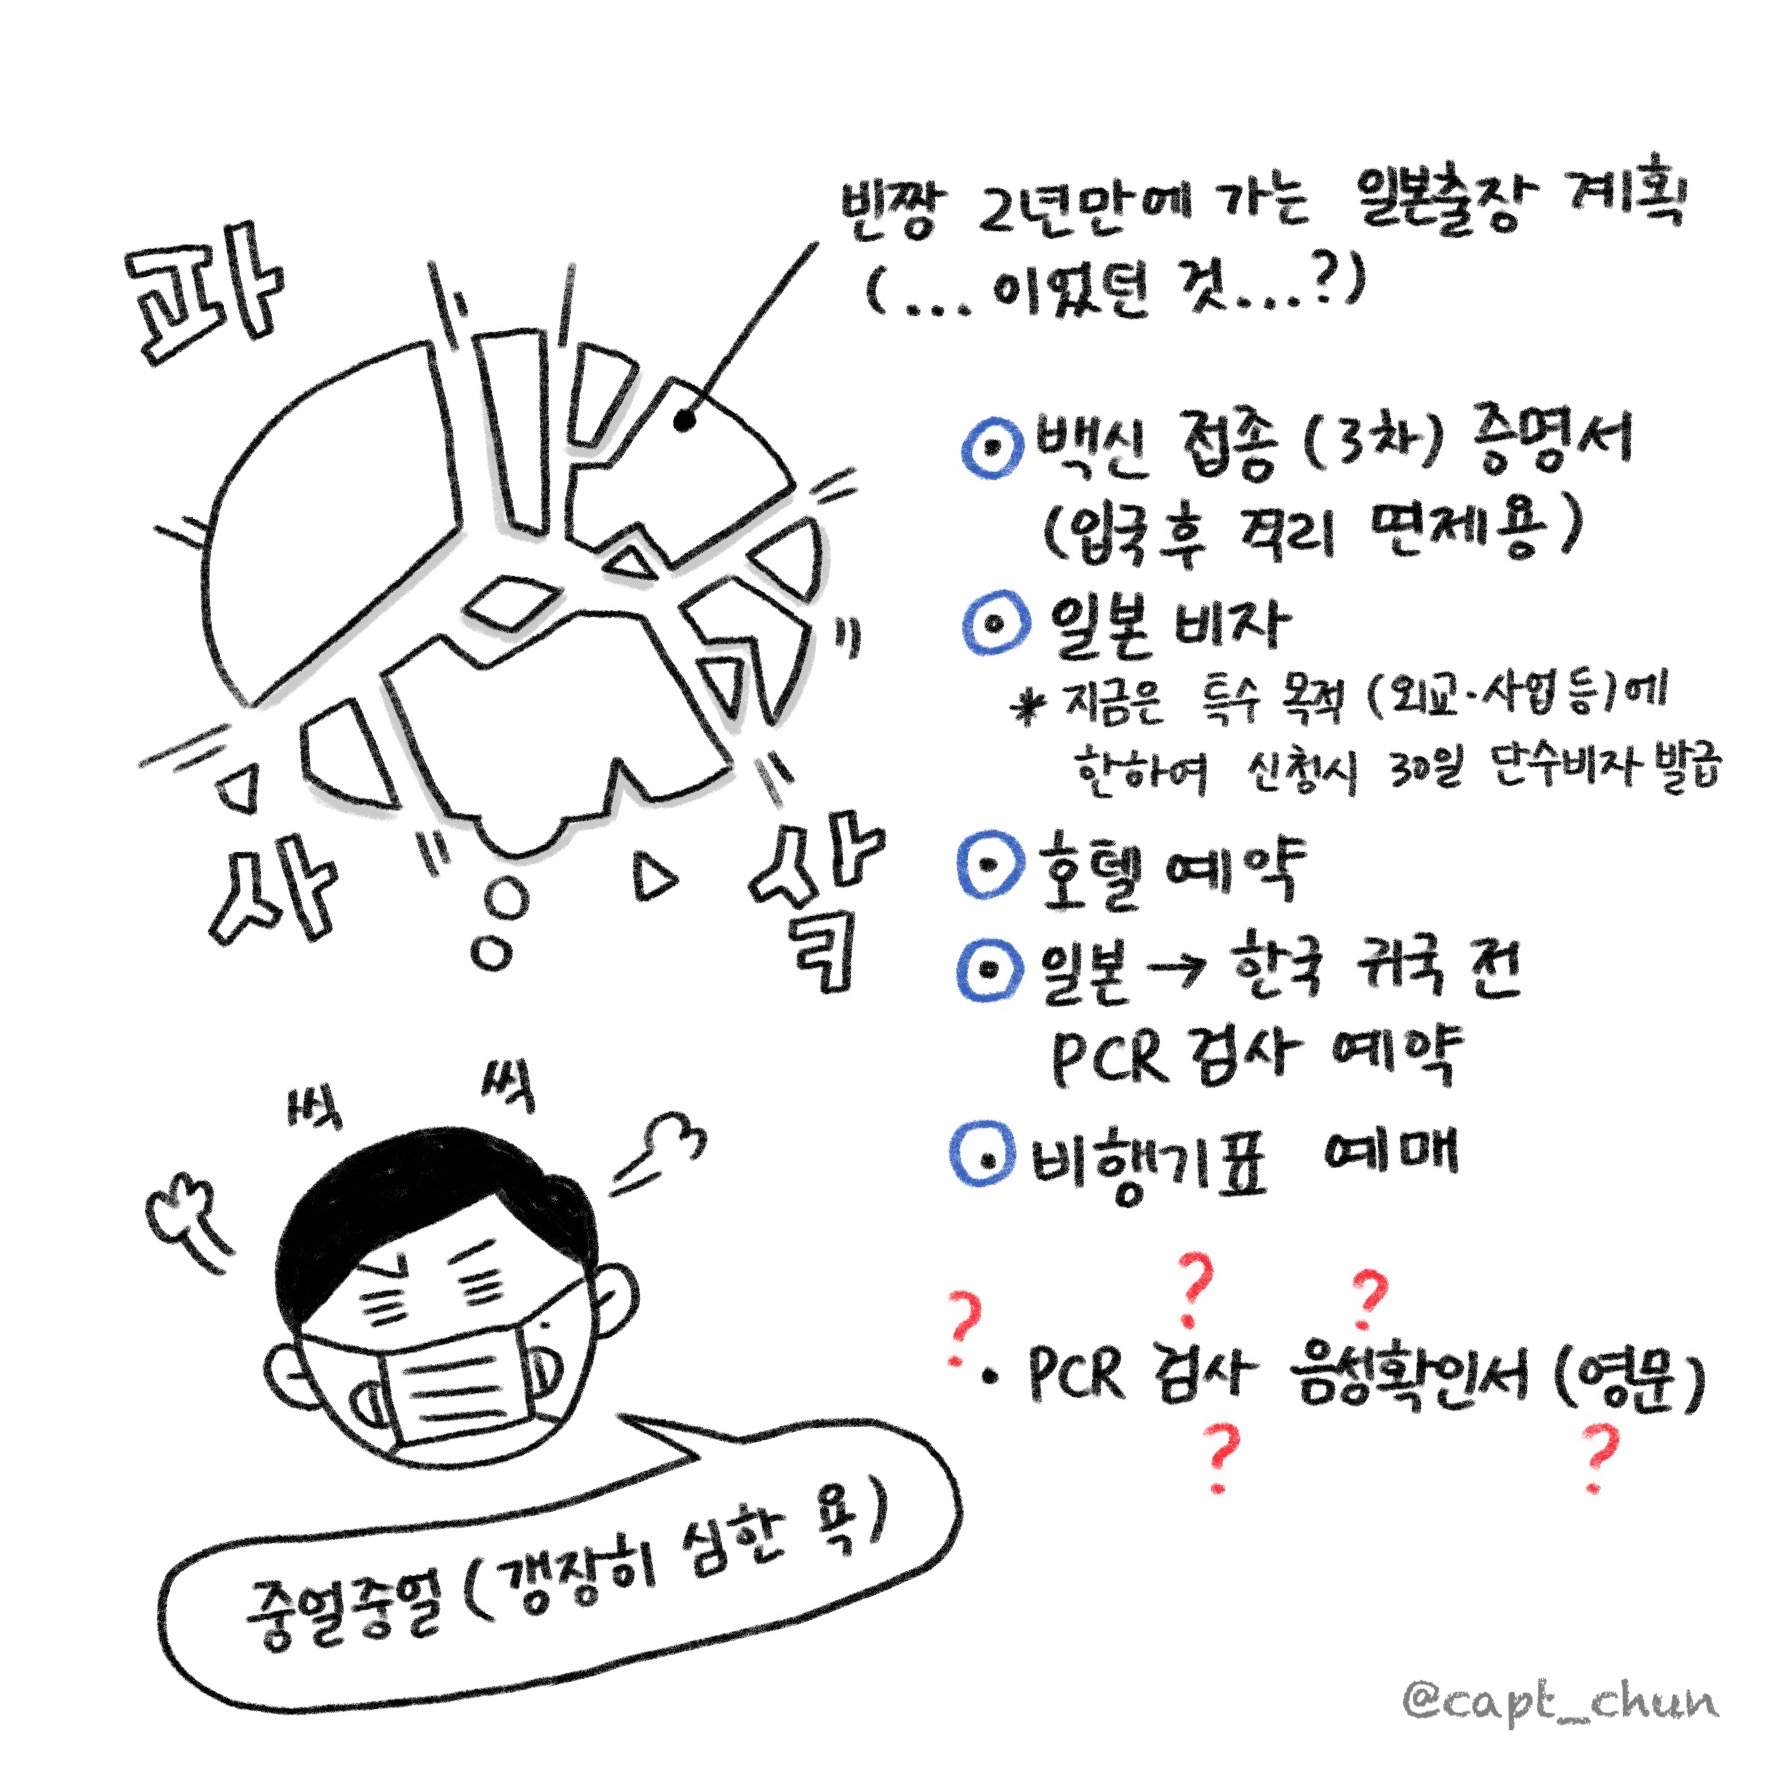 빈짱 2년만에 가는 일본출장 계획
(... 이었던 것...?)
콰
사
사
퀵
백신 접종 (3차) 증명서
(입국 후 격리 면제용)
일본 비자
* 지금은 특수 목적 (외교·사업 등)에
한하여 신청시 30일 단수비자 발급
호텔 예약
일본 → 한국 귀국 전
PCR 검사 예약
비행기표 예매
? ? ?
· PCR 검사 음성확인서 (영문)
? ?
씩 씩
중얼중얼 (갱장히 심한 욕)
@capt_chun